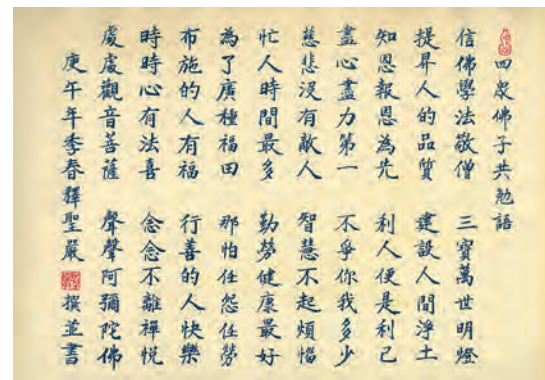 四衆佛子共勉語
信佛學法敬僧 三寶萬世明燈
提昇人的品質 建設人間淨土
知恩報恩為先 利人便是利己
盡心盡力第一 不爭你我多少
慈悲沒有敵人 智慧不起煩惱
忙人時間最多 勤勞健康最好
為了廣種福田 那怕任怨任勞
布施的人有福 行善的人快樂
時時心有法喜 念念不離禪悅
處處觀音菩薩 聲聲阿彌陀佛
庚午年季春釋聖嚴 撰並書